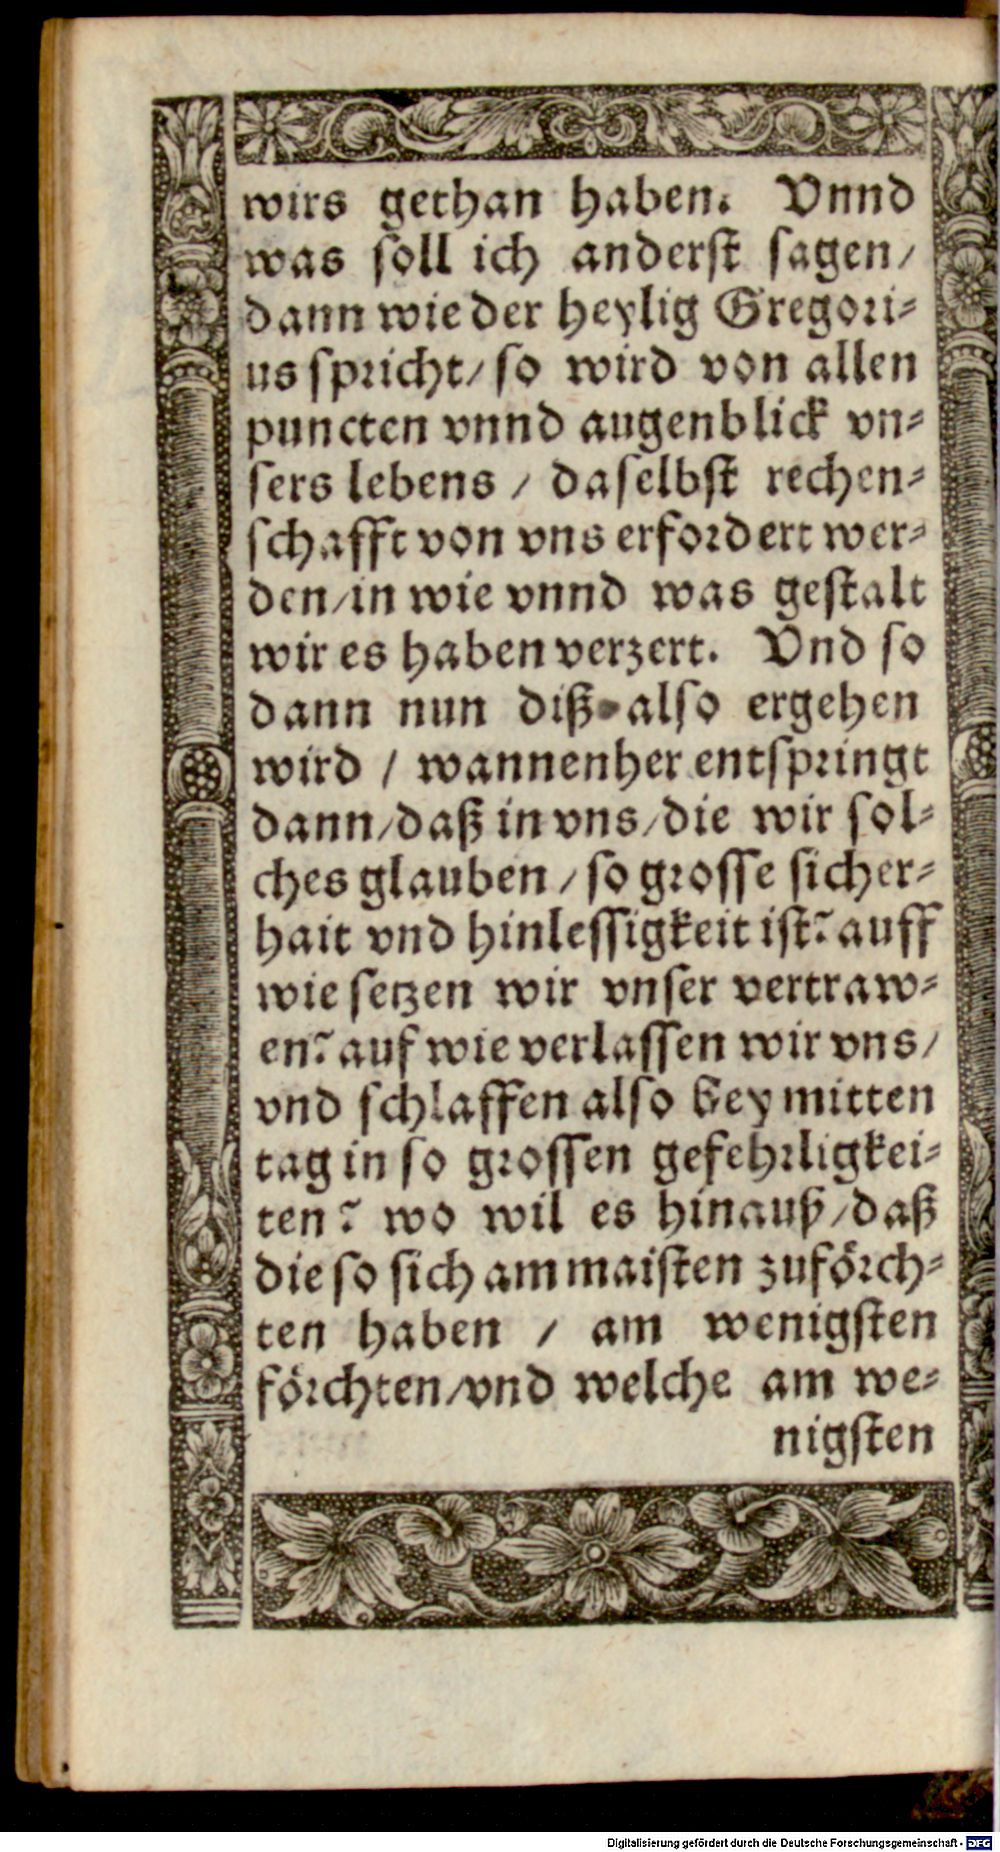 wirs gethan haben. Vnnd
was soll ich anderst sagen/
dann wie der heylig Gregori-
us spricht/ so wird von allen
puncten vnnd augenblick vn-
sers lebens / daselbst rechen-
schafft von vns erfordert wer-
den/in wie vnnd was gestalt
wir es haben verzert. Vnd so
dann nun diß also ergehen
wird / wannenher entspringt
dann/daß in vns/die wir sol-
ches glauben / so grosse sicher-
hait vnd hinlessigkeit ist? auff
wie setzen wir vnser vertraw-
en? auf wie verlassen wir vns/
vnd schlaffen also bey mitten
tag in so grossen gefehrligkei-
ten? wo wil es hinauß/daß
die so sich am maisten zuförch-
ten haben / am wenigsten
förchten/vnd welche am we-
nigsten
Digitalisierung gefördert durch die Deutsche Forschungsgemeinschaft - DFG